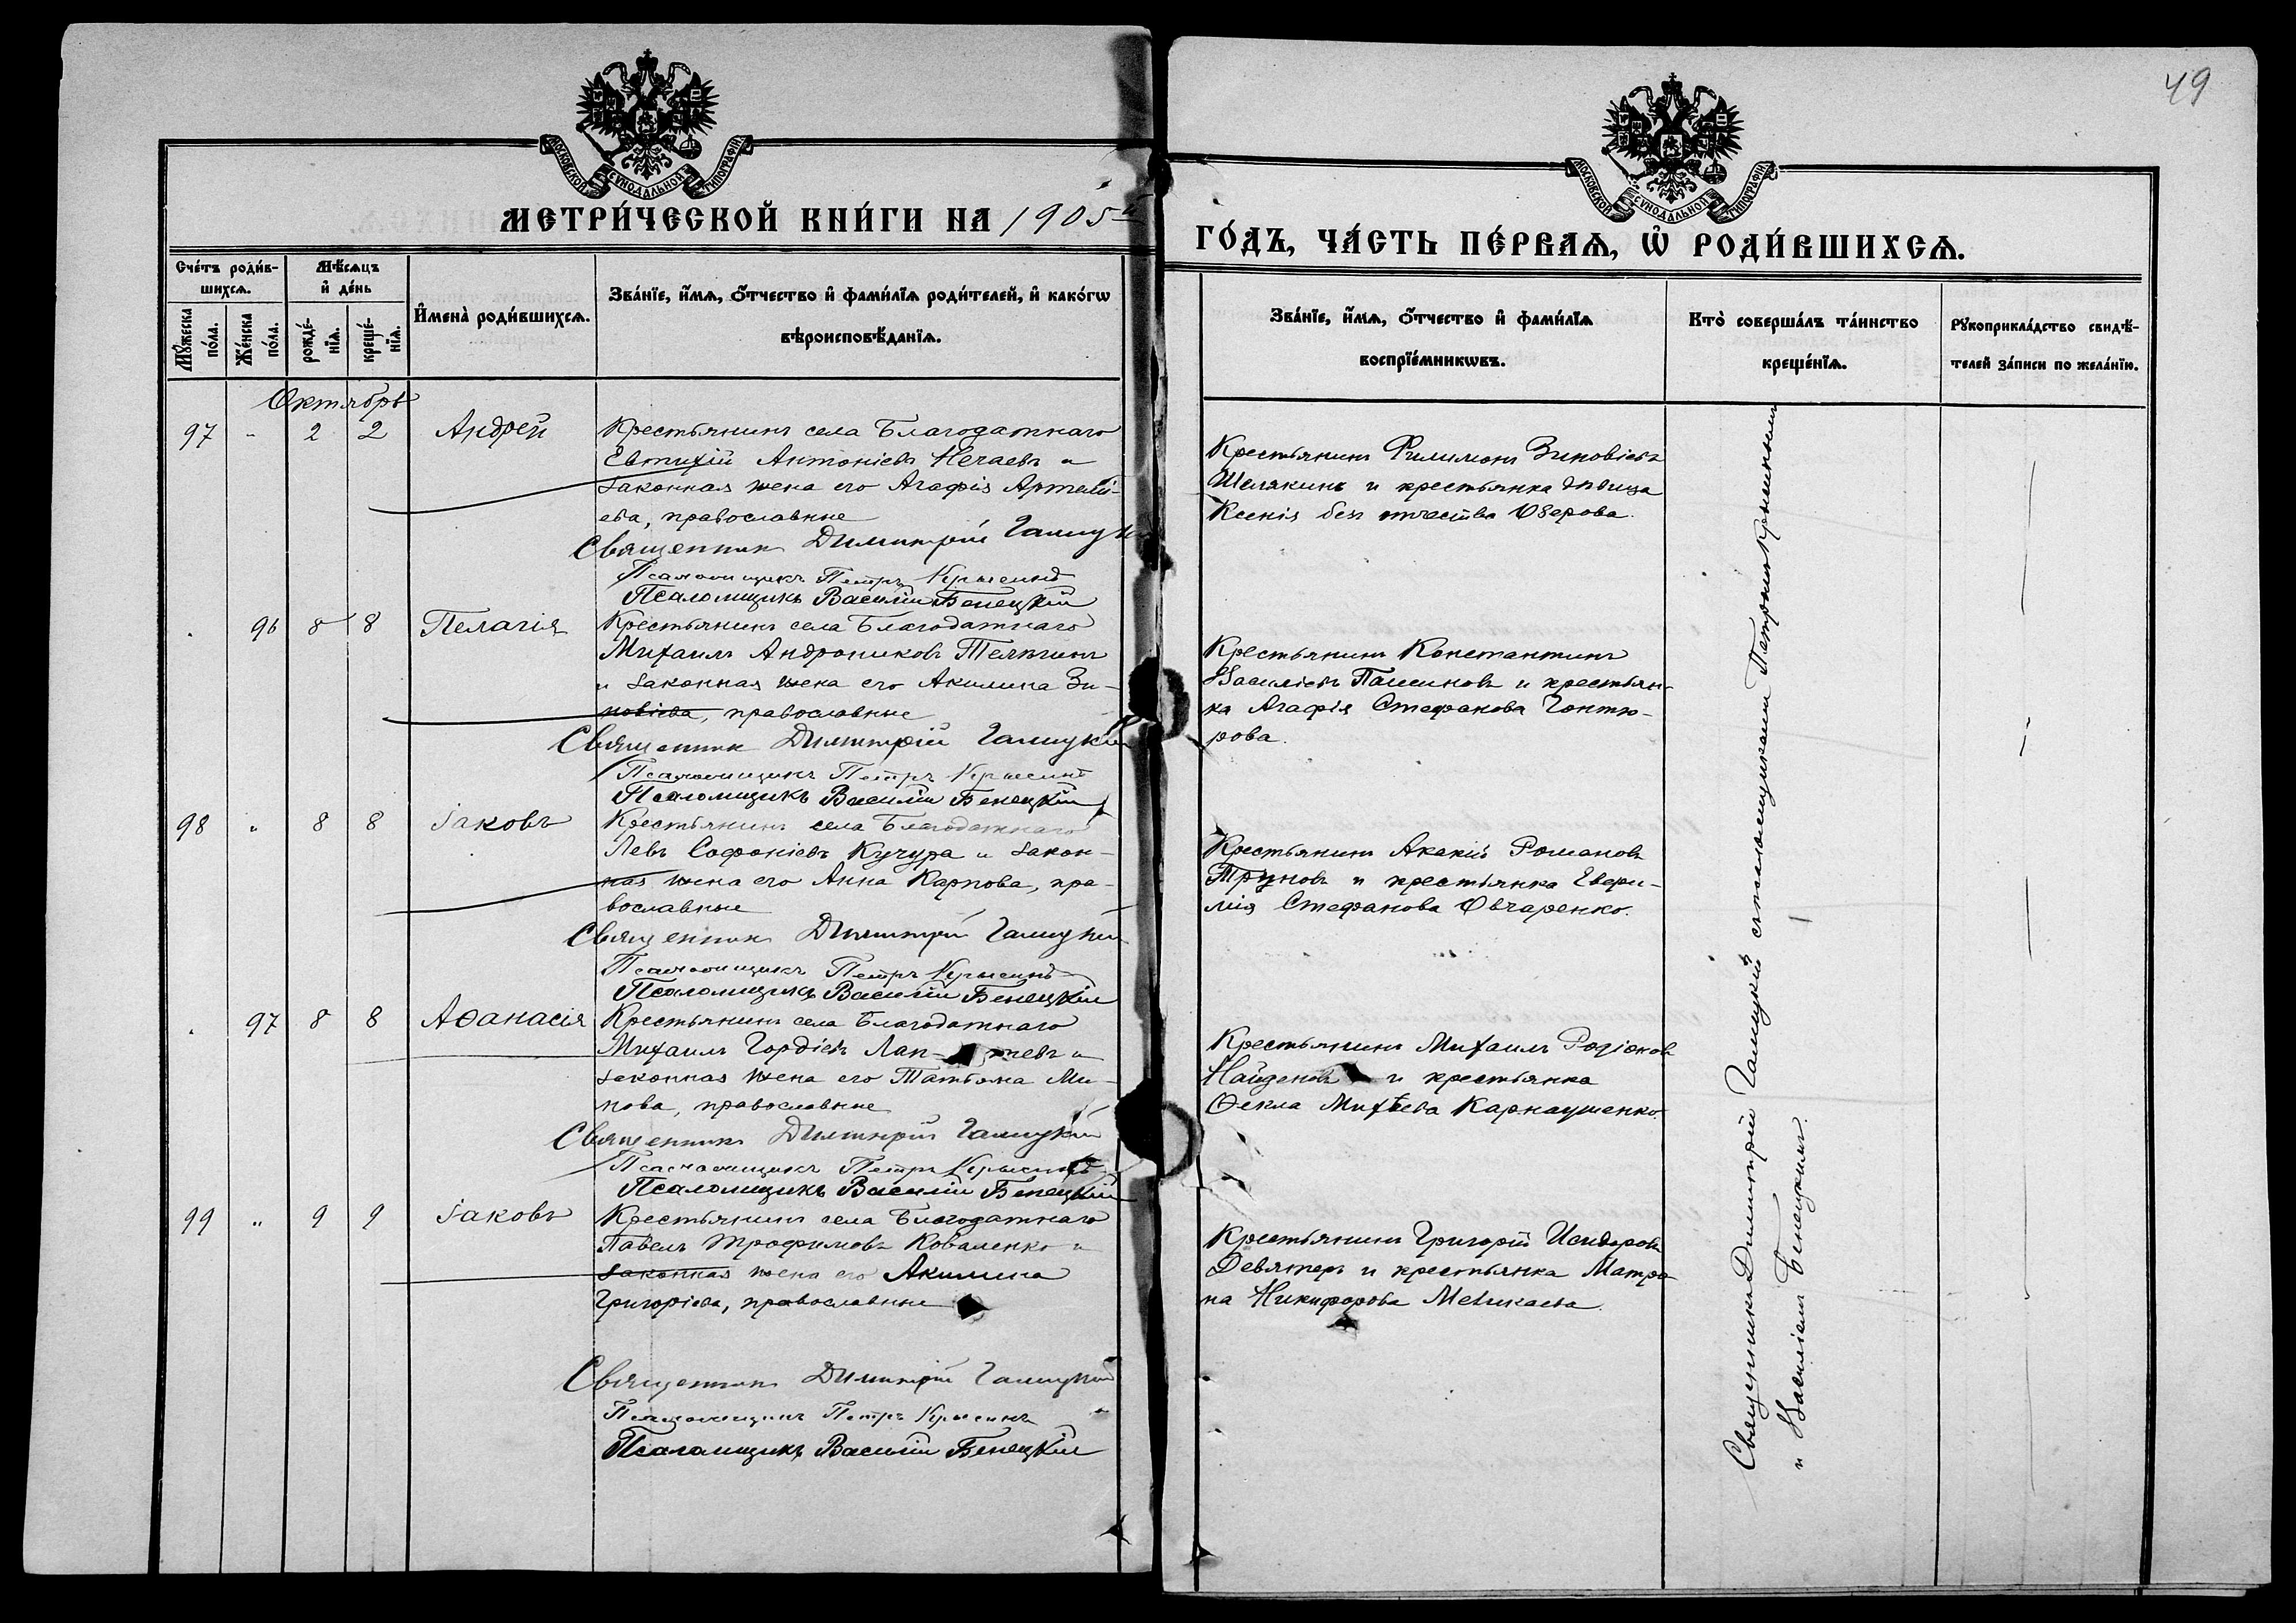 49
МОСКОВСКОЙ СѴНОДАЛЬНОЙ ТИПОГРАФІИ
МОСКОВСКОЙ СѴНОДАЛЬНОЙ ТИПОГРАФІИ
МЕТРИ́ЧЕСКОЙ КНИ́ГИ НА 1905й
ГО́ДЪ, ЧА́СТЬ ПЕ́РВАѦ, Ѡ҆ РОДИ́ВШИХСѦ.
Сче́тъ роди́в-
шихсѧ.
Мѣ́сѧцъ
и҆ де́нь
Мꙋ́жеска
по́ла.
Же́нска
по́ла.
рожде́-
нїѧ.
креще́-
нїѧ.
И҆мена̀ роди́вшихсѧ.
Зва́нїе, и҆́мѧ, ѻ҆́тчество и҆ фами́лїѧ роди́телей, и҆ како́гѡ
вѣроисповѣ́данїѧ.
Зва́нїе, и҆́мѧ, ѻ҆́тчество и҆ фами́лїѧ
воспрїе́мникѡвъ.
Кто̀ соверша́лъ та́инство
креще́нїѧ.
Рꙋкоприкла́дство свидѣ́-
телей за́писи по жела́нїю.
Октябрь
97 - 2 2 Андрей
Крестьянинъ села Благодатнаго
Евтихій Антоніевъ Нечаевъ и
законная жена его Агафія Артемі-
ева, православные
Священникъ Димитрій Галицкій
Псаломщикъ Петръ Крысинъ
Псаломщикъ Василій Бенецкій
Крестьянинъ Филимонъ Зиновіевъ
Шелякинъ и крестьянка
Ксенія безъ отчества Озерова.
96 8 8 Пелагія
Крестьянинъ села Благодатнаго
Михаилъ Андрониковъ Телягинъ
и законная жена его Акилина Зи-
новіева, православные
Священникъ Димитрій Галицкій
Псаломщикъ Петръ Крысинъ
Псаломщикъ Василій Бенецкій
Крестьянинъ Константинъ
Василіевъ Пашиновъ и крестьян-
ка Агафія Стефанова Гонтю-
рова.
98 " 8 8 Іаковъ
Крестьянинъ села Благодатнаго
Левъ Софоніевъ Кучура и закон-
ная жена его Анна Карпова, пра-
вославные
Священникъ Димитрій Галицкій
Псаломщикъ Петръ Крысинъ
Псаломщикъ Василій Бенецкій
Крестьянинъ Акакій Романовъ
Труновъ и крестьянка Евфи-
мія Стефанова Овчаренко.
97 8 8 Аѳанасія
Крестьянинъ села Благодатнаго
Михаилъ Гордіевъ Лап- тевъ и
законная жена его Татьяна Ми-
нова, православные
Священникъ Димитрій Галицкій
Псаломщикъ Петръ Крысинъ
Псаломщикъ Василій Бенецкій
Крестьянинъ Михаилъ Родіоновъ
Найденовъ и крестьянка
Ѳекла Михѣева Карнаушенко.
99 " 9 9 Іаковъ
Крестьянинъ села Благодатнаго
Павелъ Трофимовъ Коваленко и
законная жена его Акилина
Григоріева, православные
Священникъ Димитрій Галицкій
Псаломщикъ Петръ Крысинъ
Псаломщикъ Василій Бенецкій
Крестьянинъ Григорій Исидоровъ
Девятеръ и крестьянка Матро-
на Никифорова Мевикаева.
Священникъ Димитрій Галицкій съ псаломщиками Петромъ Крысинымъ
и Василіемъ Бенецкимъ.